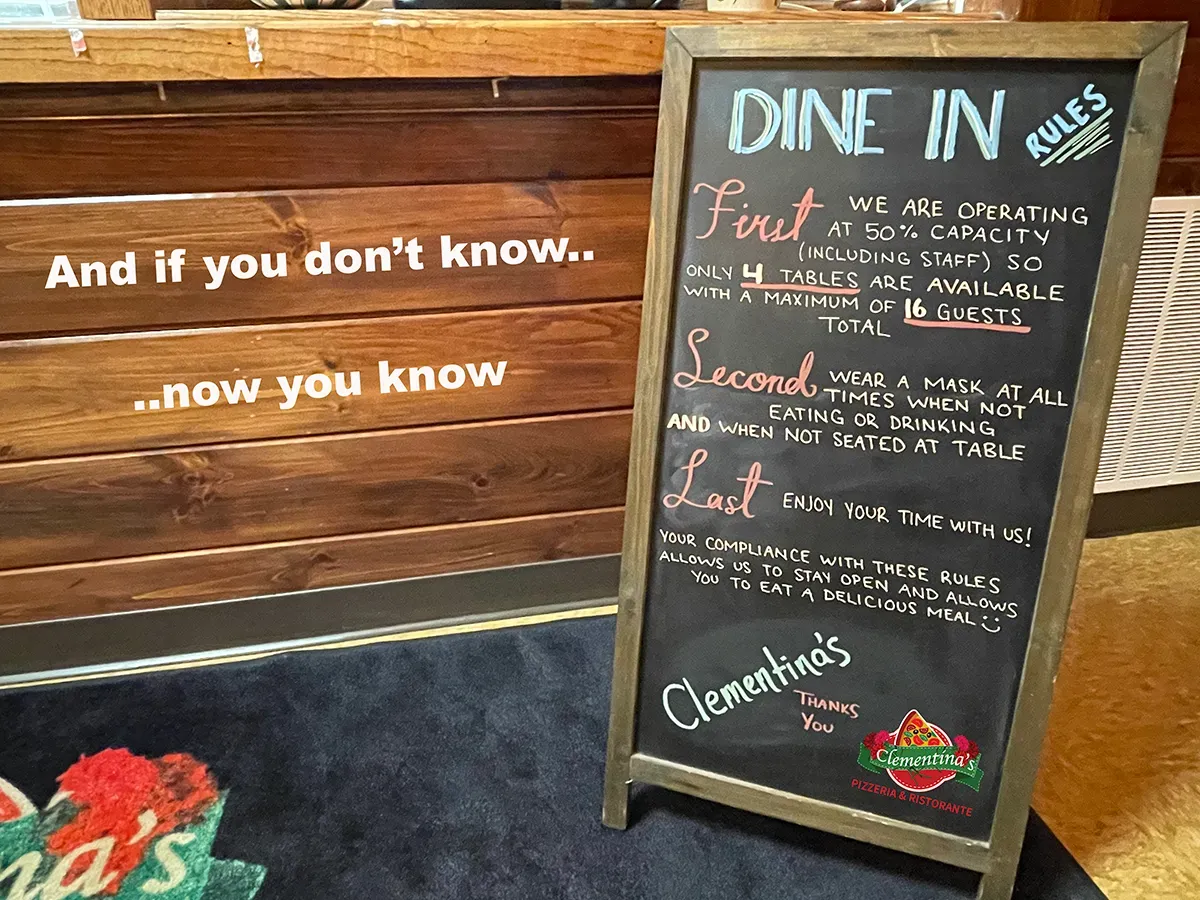 And if you don't know..
..now you know
DINE IN RULES
First WE ARE OPERATING
AT 50% CAPACITY
(INCLUDING STAFF) SO
ONLY 4 TABLES ARE AVAILABLE
WITH A MAXIMUM OF 16 GUESTS
TOTAL
Second WEAR A MASK AT ALL
TIMES WHEN NOT
EATING OR DRINKING
AND WHEN NOT SEATED AT TABLE
Last ENJOY YOUR TIME WITH US!
YOUR COMPLIANCE WITH THESE RULES
ALLOWS US TO STAY OPEN AND ALLOWS
YOU TO EAT A DELICIOUS MEAL
Clementina's
THANKS
YOU
Clementina's
PIZZERIA & RISTORANTE
na's